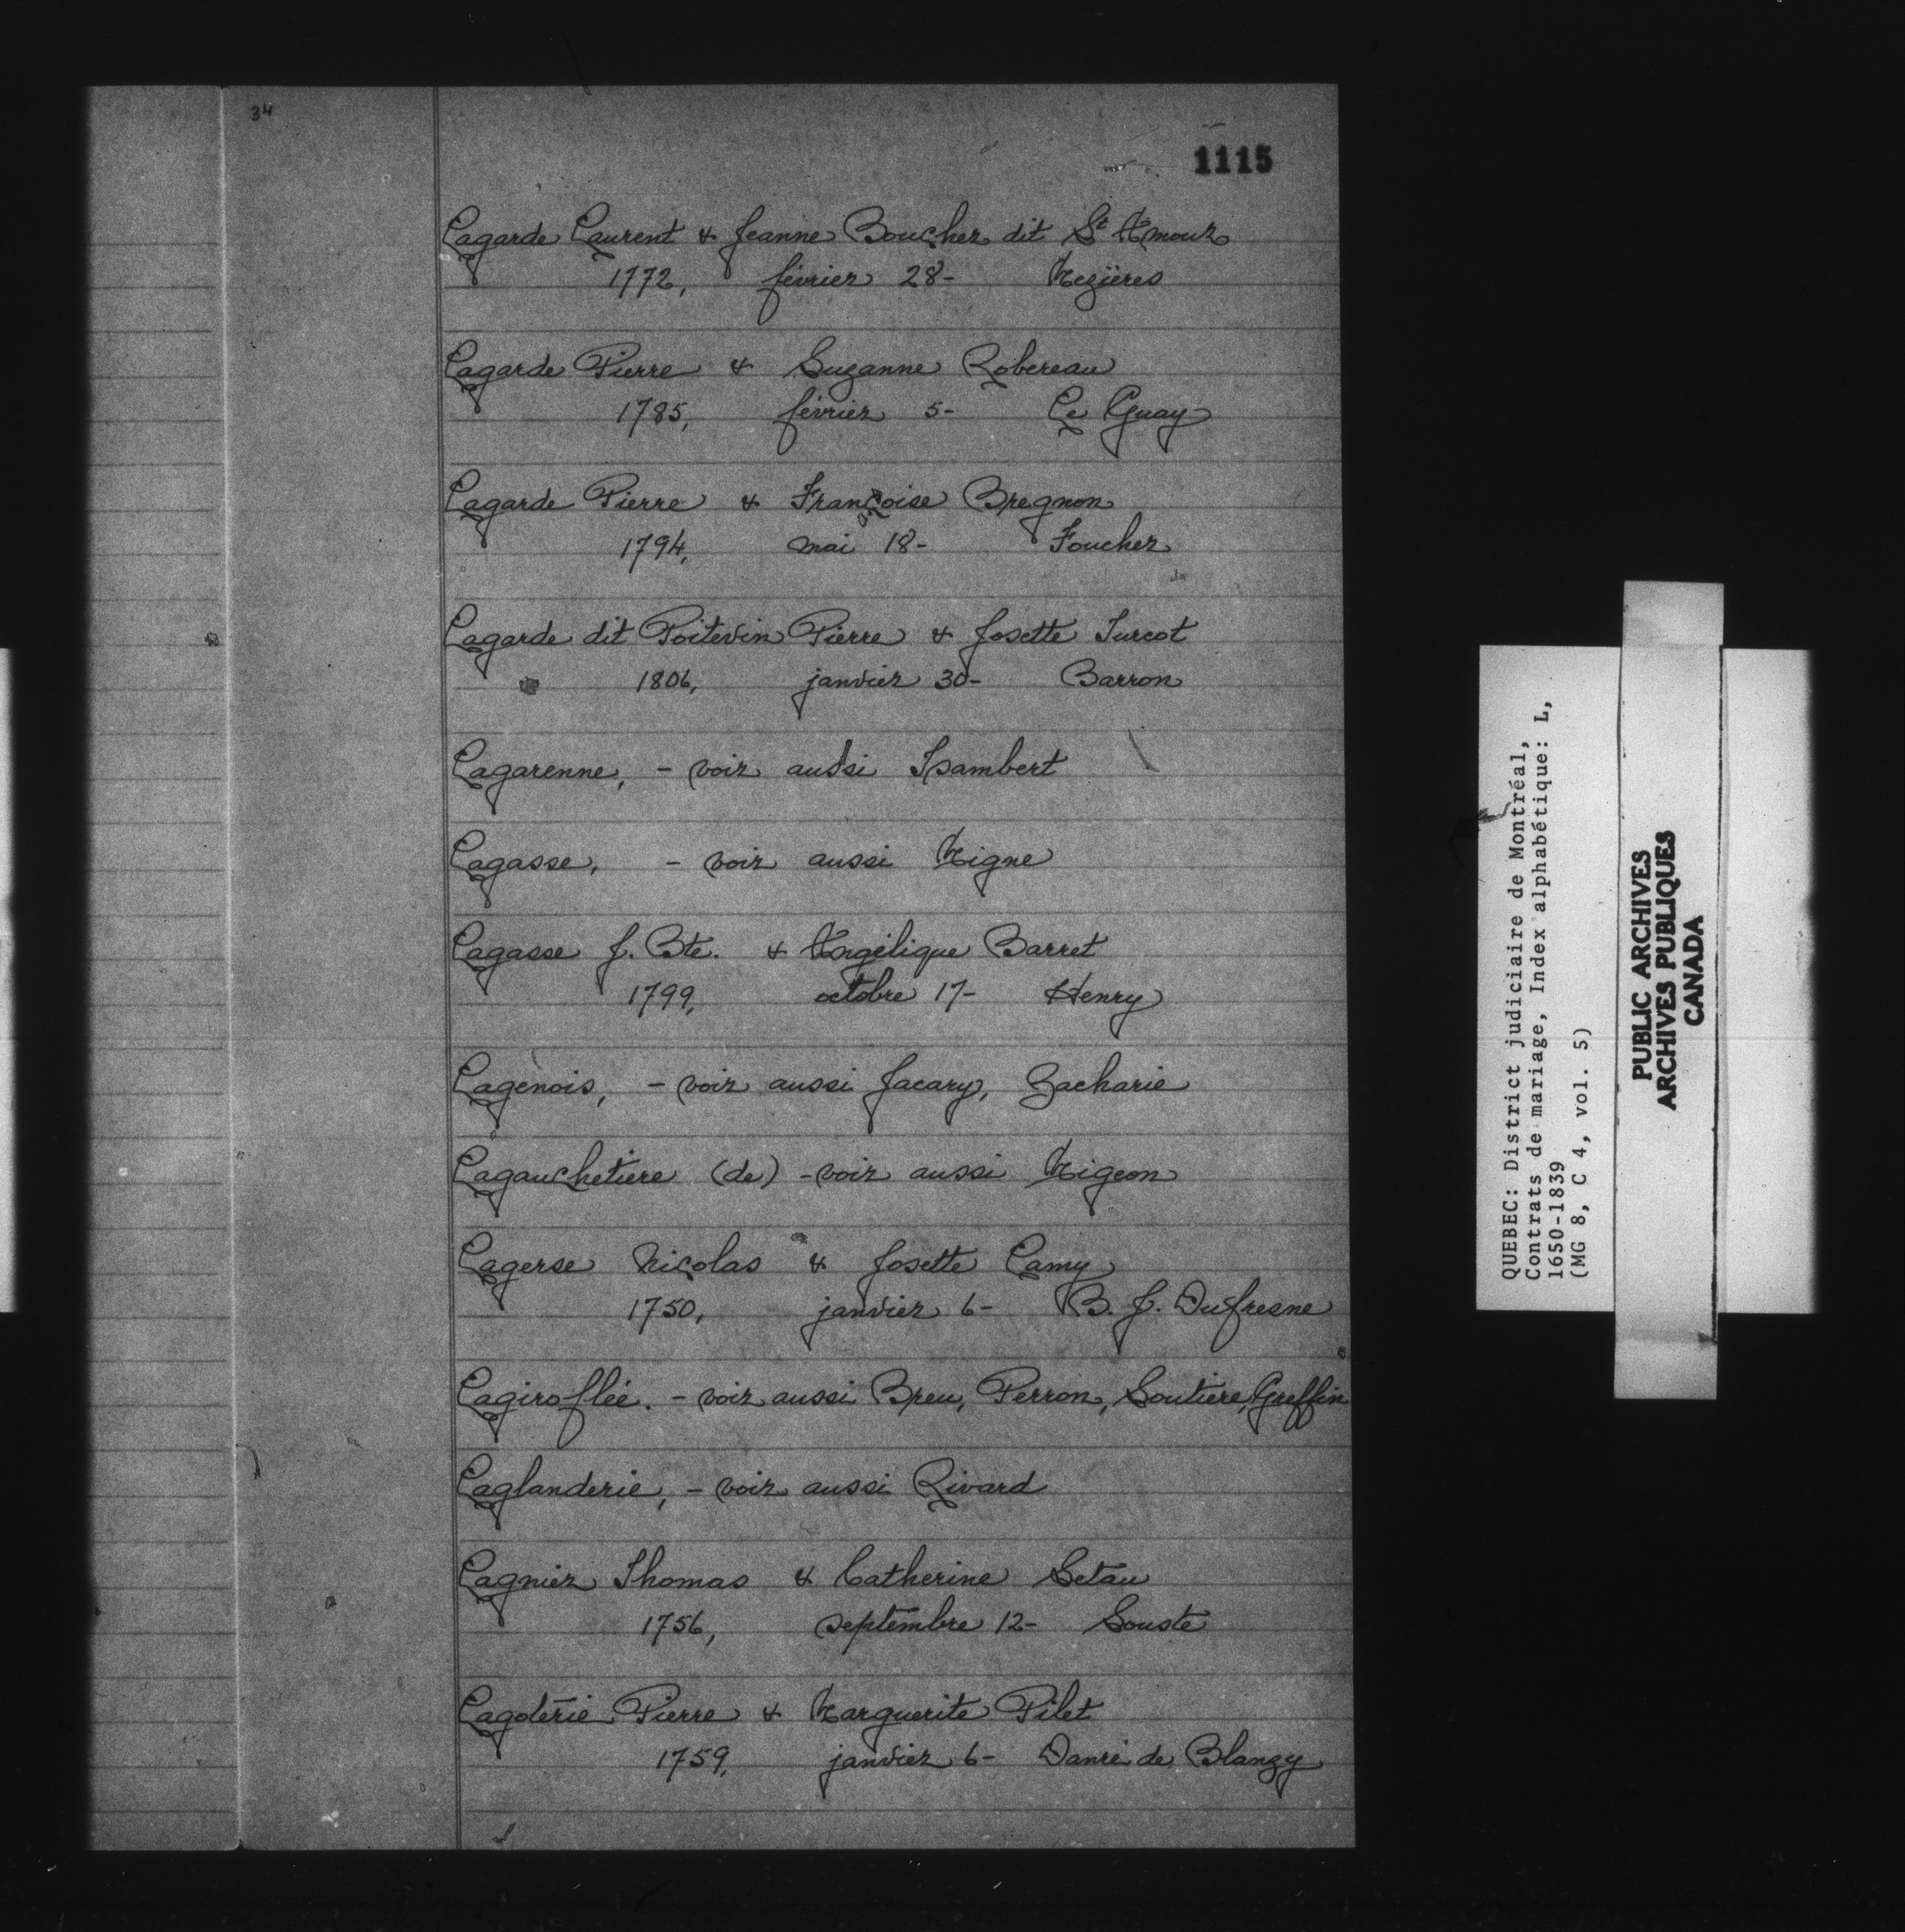 34
1115
Lagarde Laurent & Jeanne Boucher dit St Amour
1772, février 28- Mezières
Lagarde Pierre & Suzanne Robereau
1785, février 5- Le Guay
Lagarde Pierre & Françoise Bregnon
1794, mai 18- Foucher
Lagarde dit Poitevin Pierre & Josette Turcot
1806, janvier 30- Barron
Lagarenne, - voir aussi Isambert
Lagasse, - voir aussi Migne
Lagasse J. Bte. & Angélique Barret
1799, octobre 17- Henry
Lagenois, - voir aussi Jacary, Zacharie
Lagauchetiere (de) - voir aussi Migeon
Lagerse Nicolas & Josette Lamy
1750, janvier 6- B. J. Dufresne
Lagiroflée. - voir aussi Breu, Perron, Soutiere, Greffin
Laglanderie, - voir aussi Rivard
Lagnier Thomas & Catherine Setau
1756, septembre 12- Souste
Lagoterie Pierre & Marguerite Pilet
1759, janvier 6- Danré de Blanzy
QUEBEC: District judiciaire de Montréal,
Contrats de mariage, Index alphabétique: L,
1650-1839
(MG 8, C 4, vol. 5)
PUBLIC ARCHIVES
ARCHIVES PUBLIQUES
CANADA